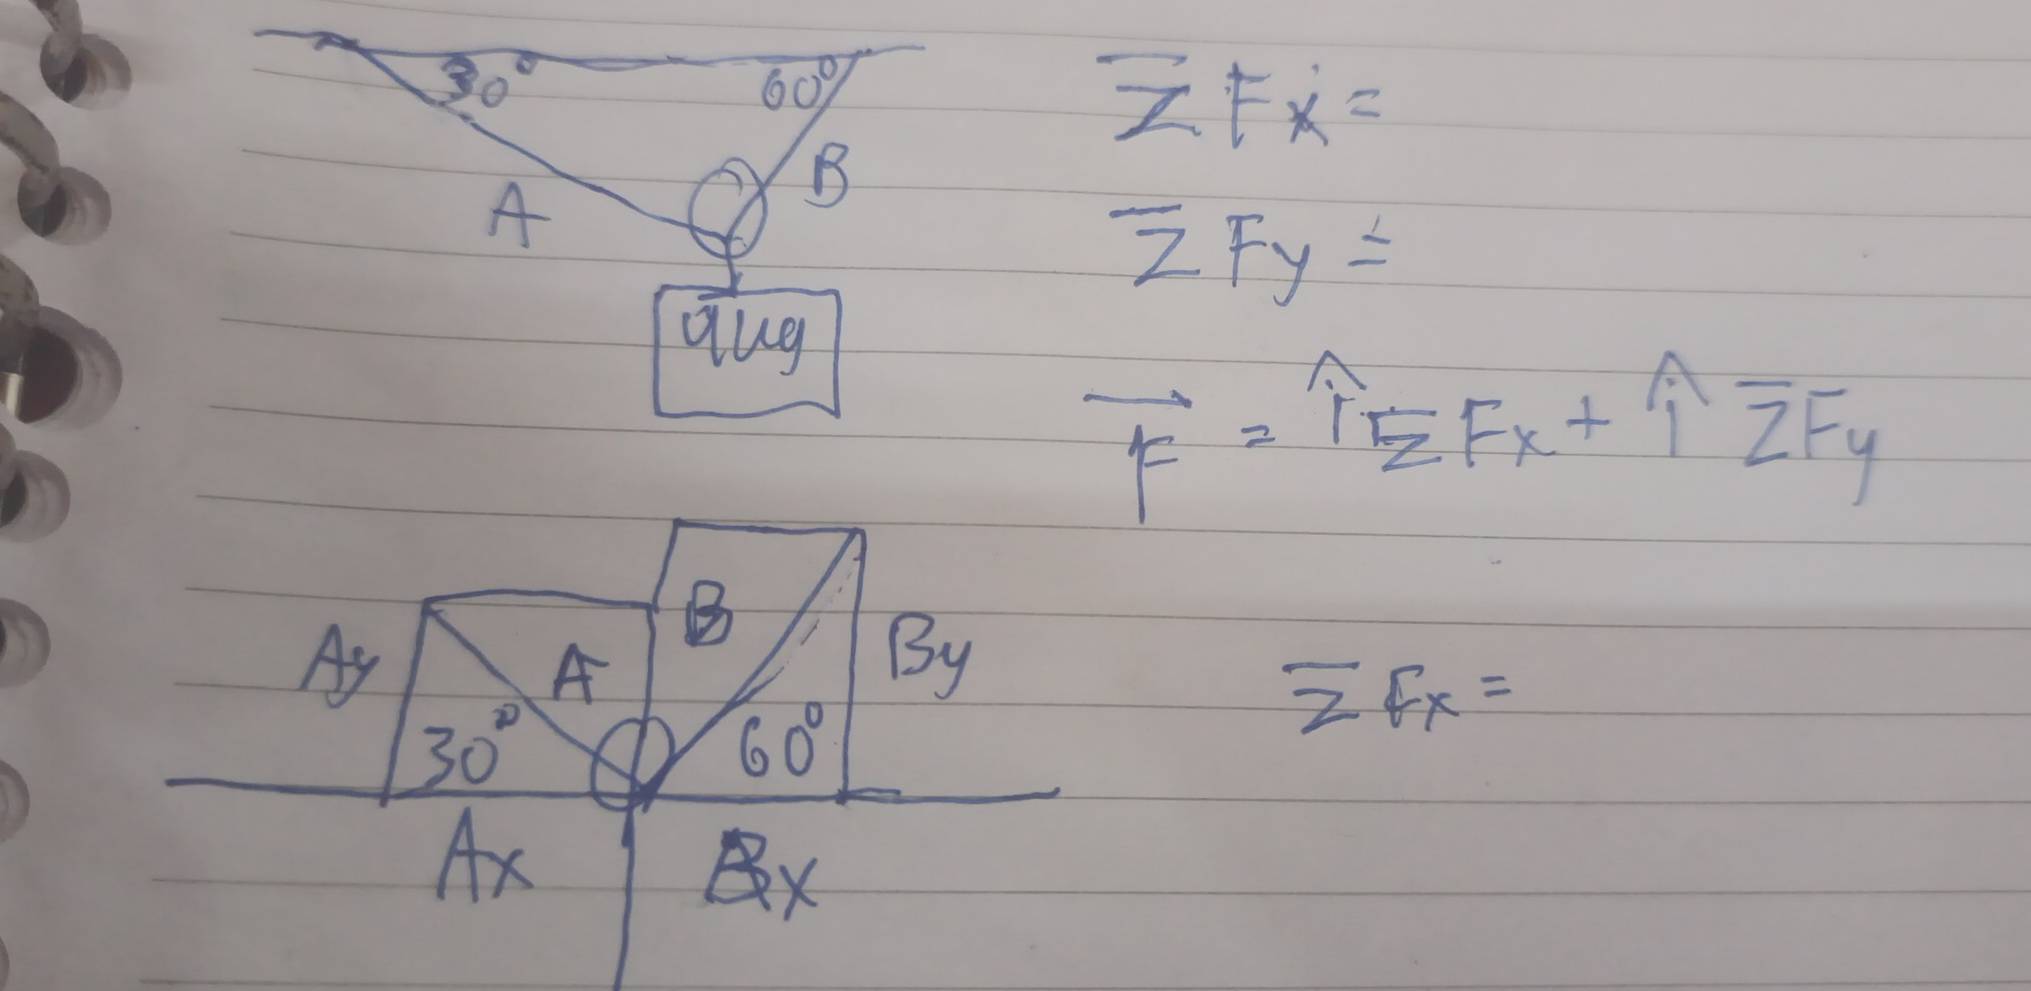 30° 60°
A B
ΣFx =
ΣFy =
F = î ΣFx + î ΣFy
Ay A B By
30° 60°
Ax Bx
ΣFx =